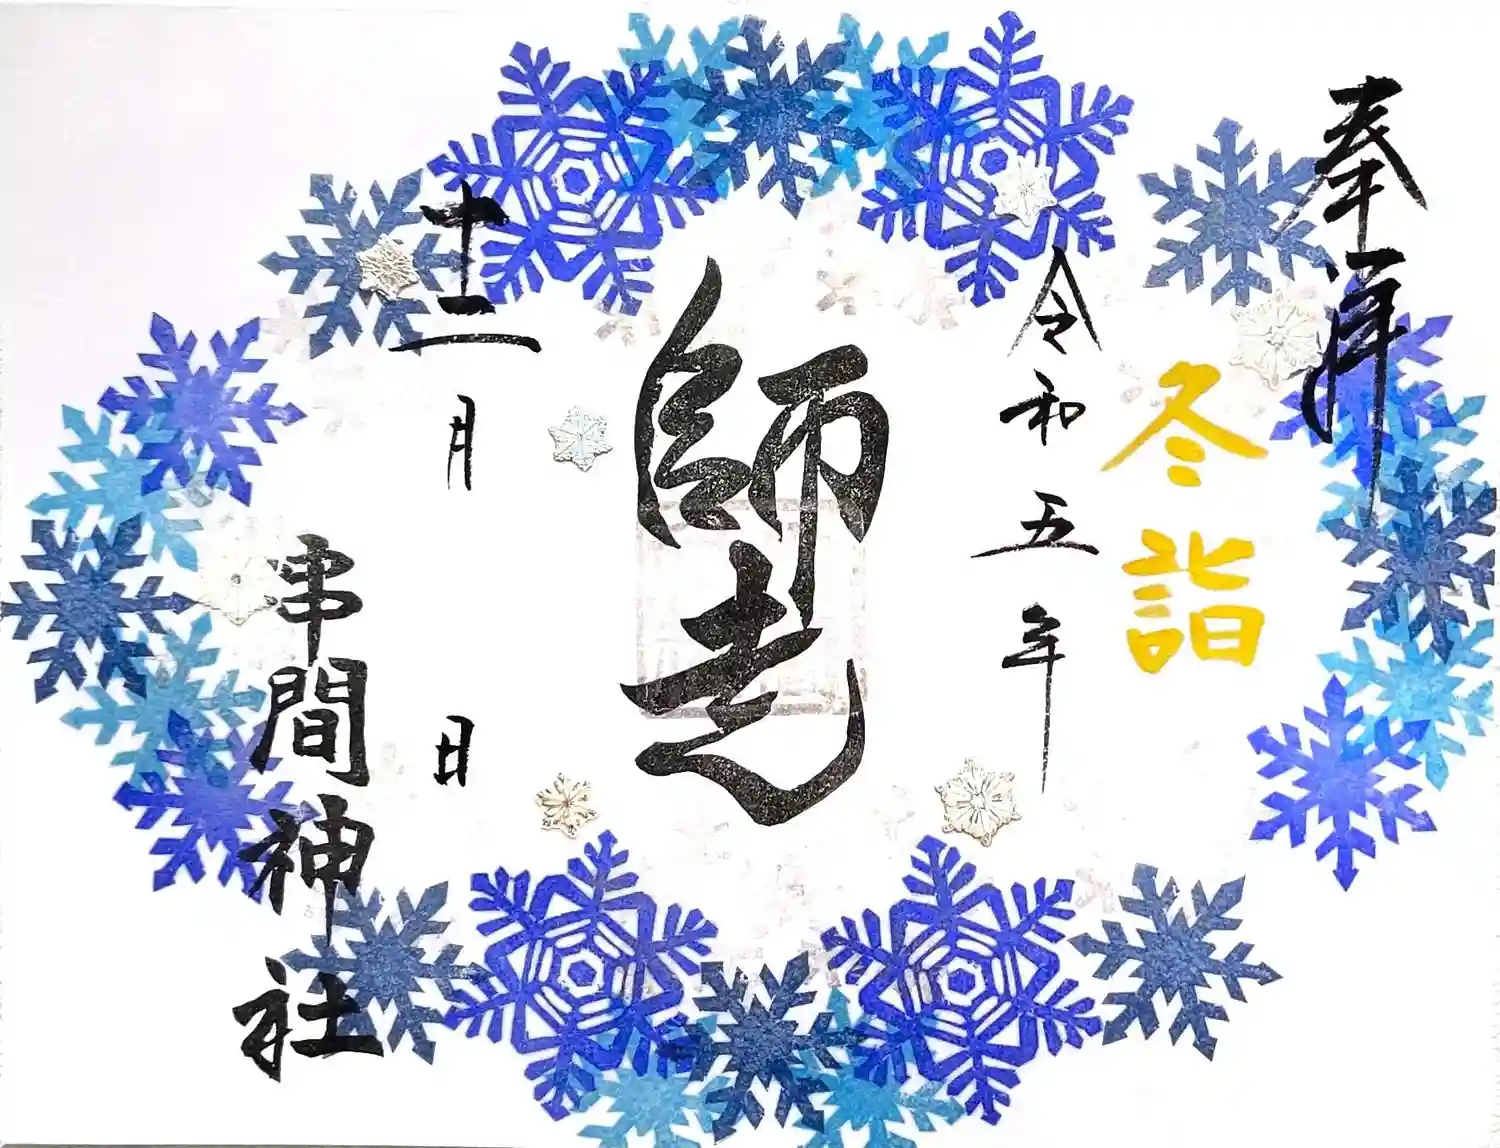 奉拝
冬詣
令和五年
師走
十二月 日
串間神社